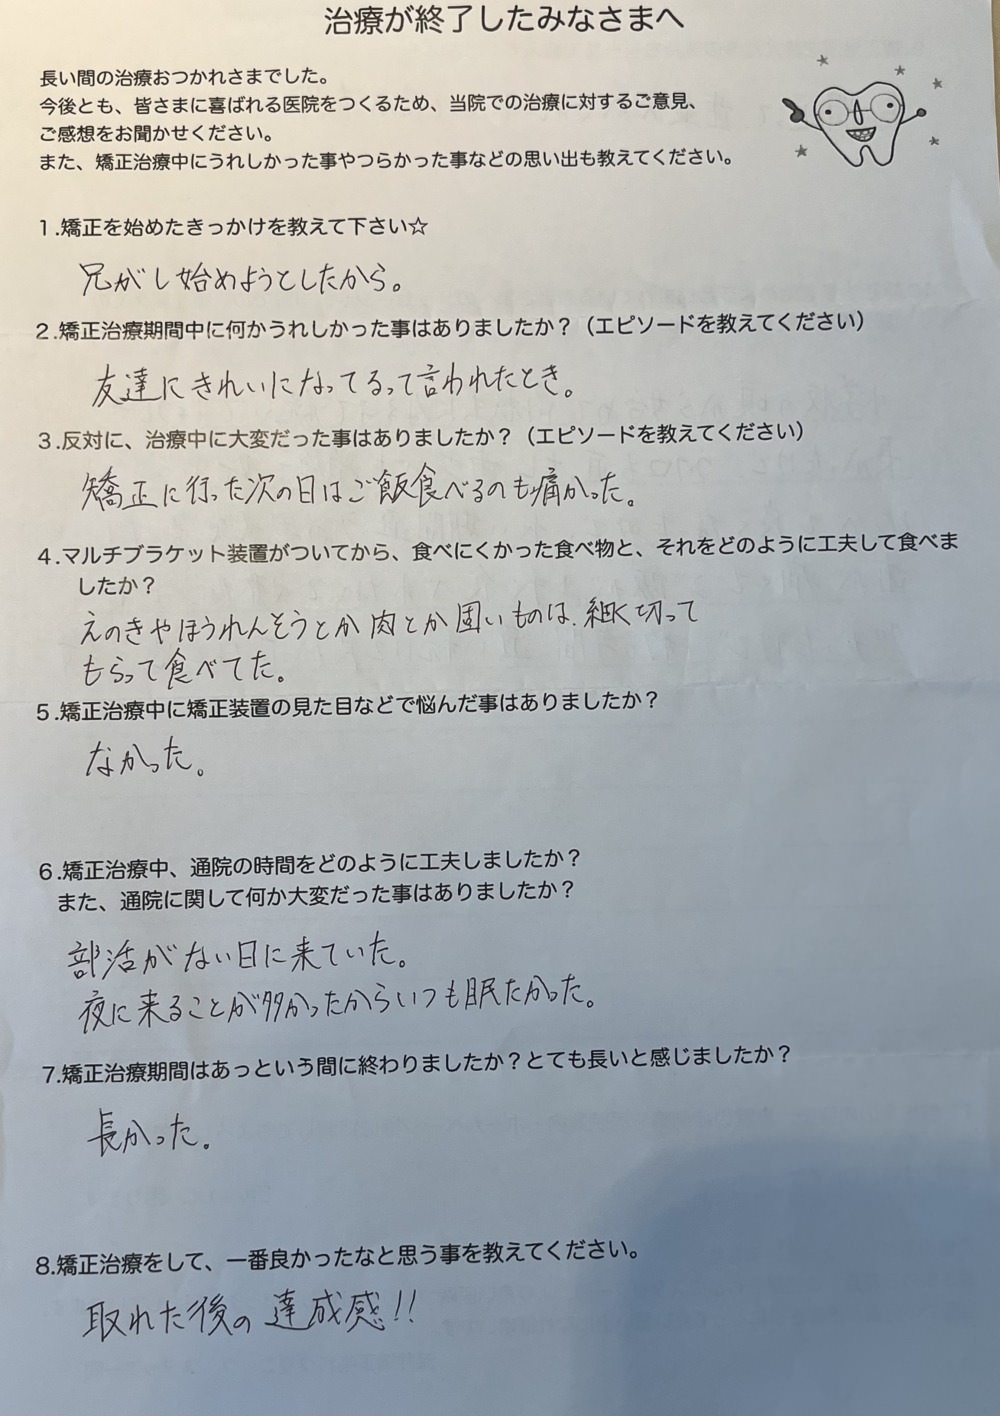 治療が終了したみなさまへ
長い間の治療おつかれさまでした。
今後とも、皆さまに喜ばれる医院をつくるため、当院での治療に対するご意見、
ご感想をお聞かせください。
また、矯正治療中にうれしかった事やつらかった事などの思い出も教えてください。
1.矯正を始めたきっかけを教えて下さい☆
兄がし始めようとしたから。
2.矯正治療期間中に何かうれしかった事はありましたか？（エピソードを教えてください）
友達にきれいになってるって言われたとき。
3.反対に、治療中に大変だった事はありましたか？（エピソードを教えてください）
矯正に行った次の日はご飯食べるのも痛かった。
4.マルチブラケット装置がついてから、食べにくかった食べ物と、それをどのように工夫して食べま
したか？
えのきやほうれんそうとか肉とか固いものは、細く切って
もらって食べてた。
5.矯正治療中に矯正装置の見た目などで悩んだ事はありましたか？
なかった。
6.矯正治療中、通院の時間をどのように工夫しましたか？
また、通院に関して何か大変だった事はありましたか？
部活がない日に来ていた。
夜に来ることが多かったからいつも眠たかった。
7.矯正治療期間はあっという間に終わりましたか？とても長いと感じましたか？
長かった。
8.矯正治療をして、一番良かったなと思う事を教えてください。
取れた後の達成感!!